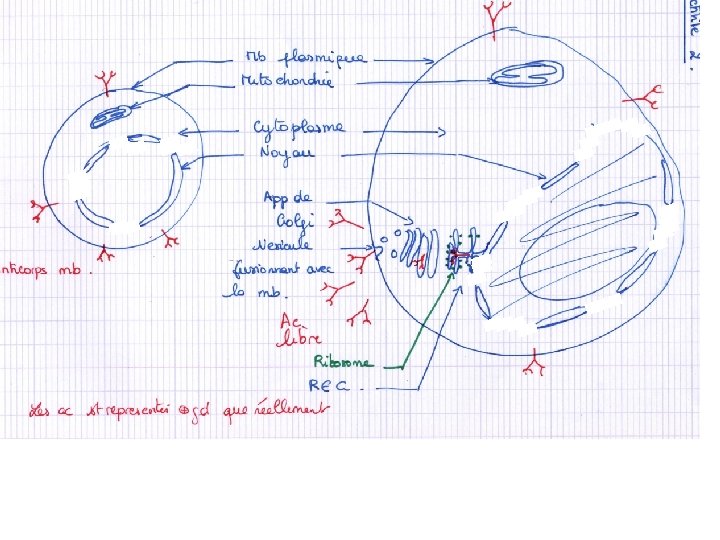 Mb plasmique
Mitochondrie
Cytoplasme
Noyau
App de
Golgi
Vésicule
fusionnant avec
la mb.
nticorps mb.
Ac
libre
Ribosome
REG.
Les ac st représentés ⊕ gd que réellement